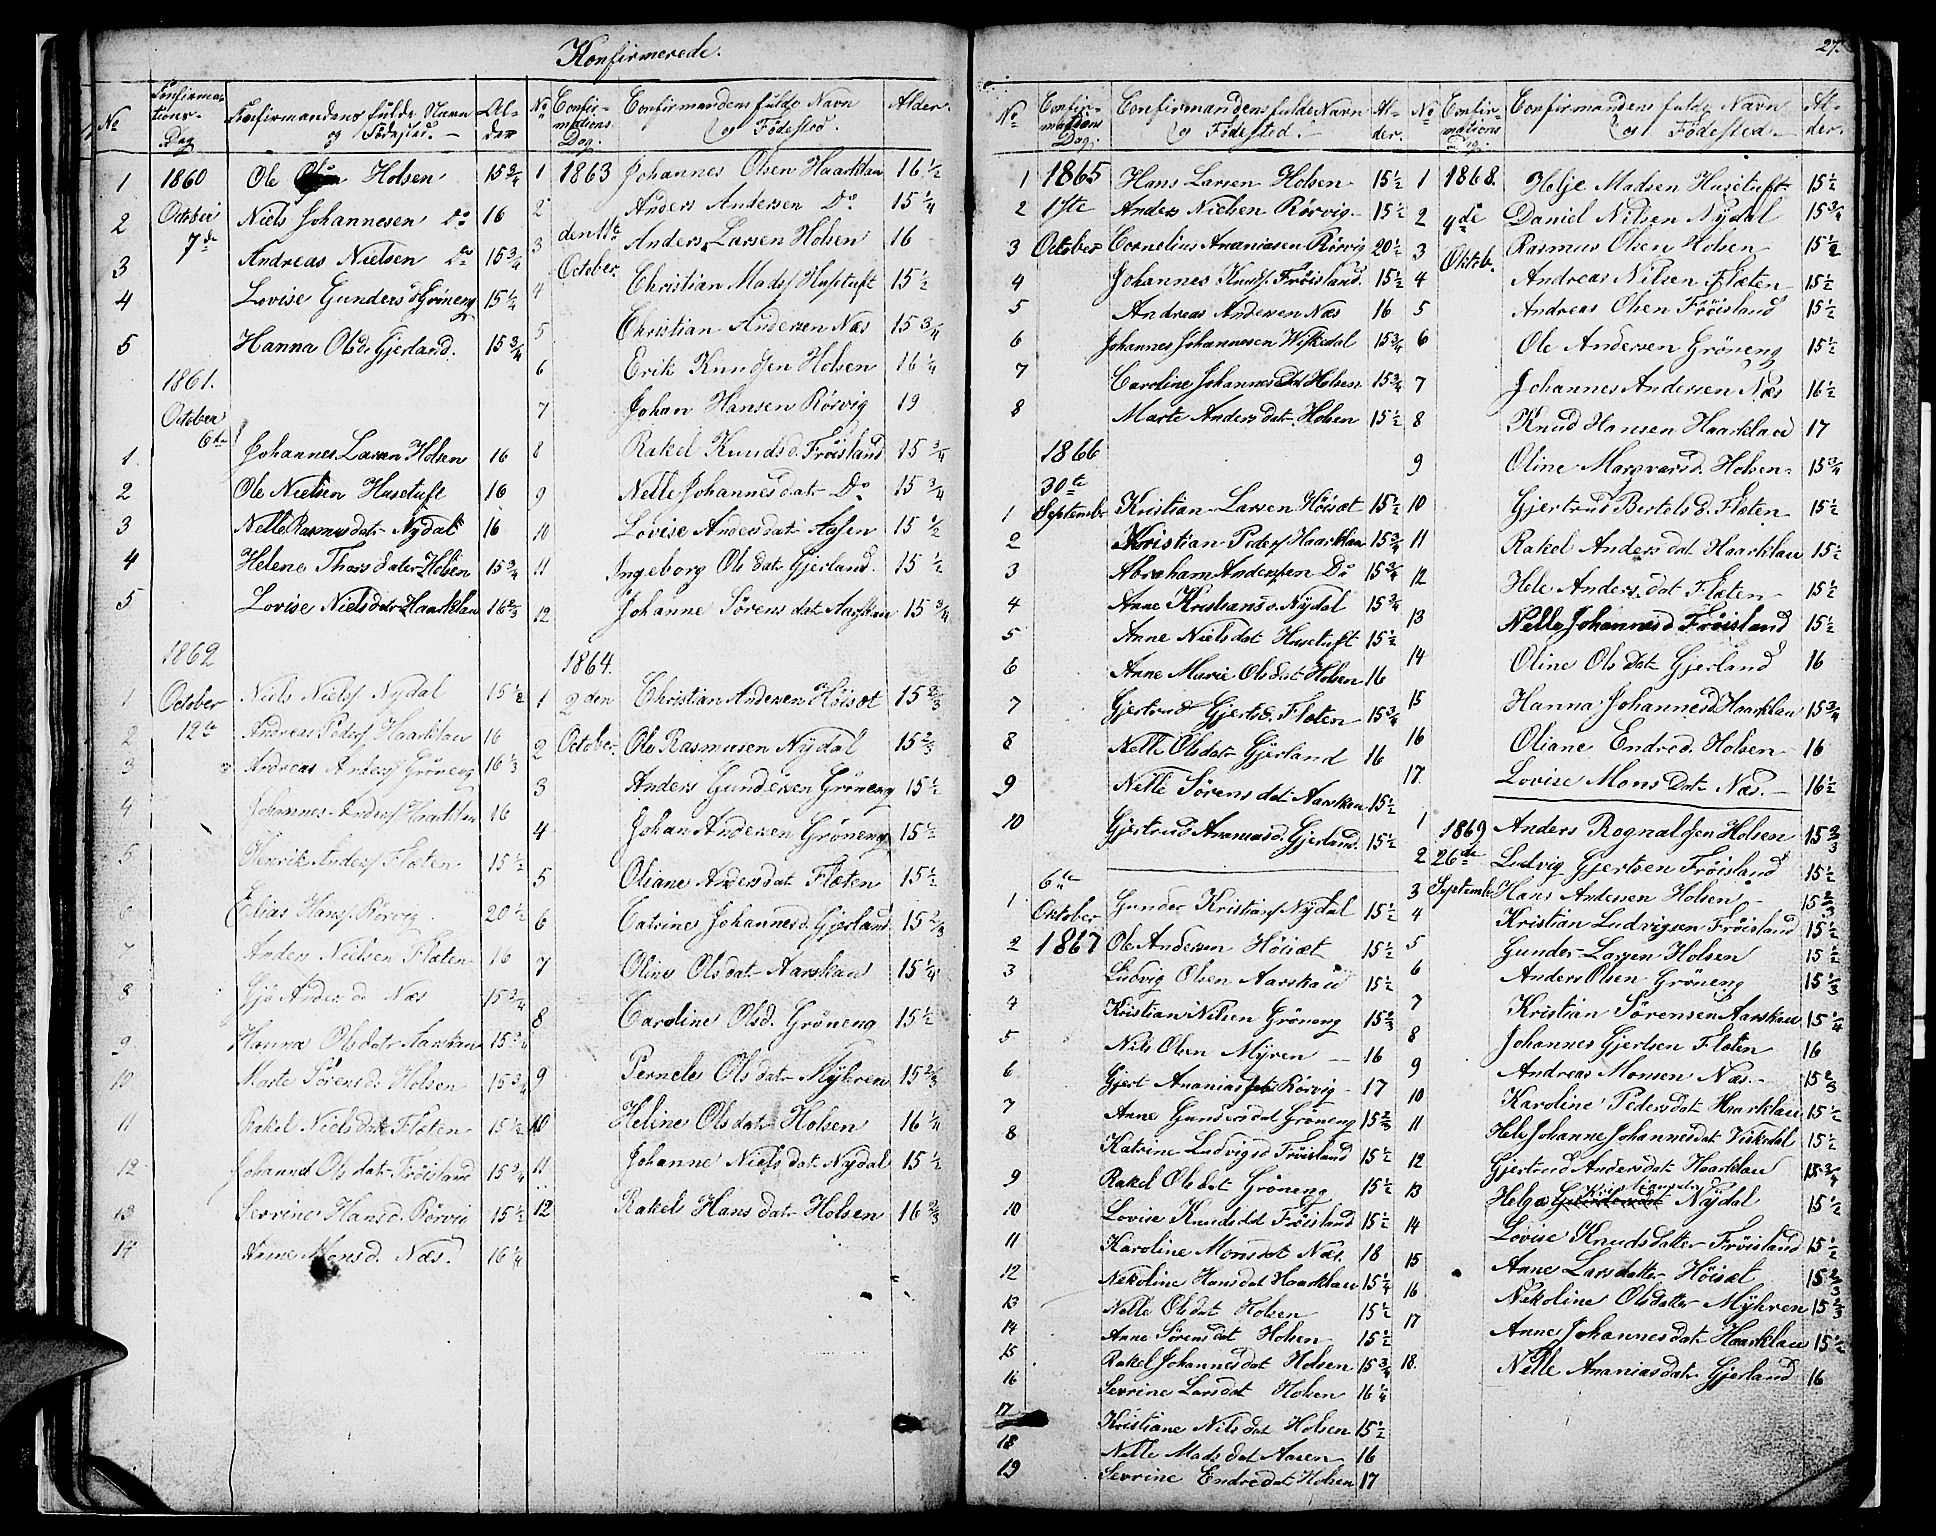 Konfirmerede.
No Confirmations Dag Confirmandens fulde Navn og Fødested. Alder
1 1860 Ole Holsen 15 3/4
2 October Niels Johannesen Do 16
7de
3 Andreas Nielsen Do 15 3/4
4 Lovise Gundersd Gröneng 15 1/4
5 Hanna Olsd. Gjerland. 15 3/4
1861.
October
6te
1. Johannes Larsen Holsen 16
2 Ole Nielsen Husetuft 16
3 Nelle Rasmusdat Nydal 16
4 Helene Thorsdater Holsen 15 3/4
5 Lovise Nielsdatr Haarklau 16 2/3
1862
1 October Niels Nielsf Nydal 15 1/2
2 12te Andreas Pedersf Haarklau 16
3 Andreas Andersf Gröneng 16 1/3
4 Johannes Andersf Haarklau 16
5 Henrik Andersf Flöten 15 1/2
6 Elias Hansf Rörvig 20 1/2
7 Anders Nielsen Flæten 16
8 Anders d Næs 15 3/4
9 Hanna Olsdatr Aarskau 15 3/4
10 Marte Sörensd. Holsen 15 3/4
11 Rakel Nielsdat Flæten 15 1/2
12 Johanne Olsdat Fröisland 15 3/4
13 Sevrine Hansd. Rörvig 15 1/2
14 Anne Monsd. Næs. 16 1/4
No Confirmations Dag. Confirmandens fulde Navn og Fødested. Alder.
1 1863 Johannes Olsen Haarklau 16 1/2
2 Anders Andersen Do 15 1/4
3 den 11te Anders Larsen Holsen 16
4 October. Christian Madsf Husetuft 15 1/2
5 Christian Andersen Næs 15 3/4
6 Erik Knudsen Holsen 16 1/4
7 Johan Hansen Rörvig 19
8 Rakel Knudsd. Fröisland 15 3/4
9 Nelle Johannesdat Do 15 3/4
10 Lovise Andersdat Aasen 15 1/2
11 Ingeborg Olsdat Gjerland. 15 1/2
12 Johanne Sörensdat Aarskau 15 3/4
1864.
1 2den Christian Andersen Höisæt 15 2/3
2 October. Ole Rasmusen Nydal 15 2/3
3 Anders Gundersen Gröneng 15 1/2
4 Johan Andersen Gröneng 15 1/2
5 Oliane Andersdat Flæten 15 1/2
6 Catrine Johannesd. Gjerland 15 2/3
7 Oline Olsdat Aarskau 15 1/4
8 Caroline Olsd. Gröneng 15 1/2
9 Pernele Olsdatr Myhren 15 2/3
10 Heline Olsdat Holsen 16 1/4
11 Johanne Nielsdat Nydal 15 1/2
12 Rakel Hansdat Holsen 16 2/3
27.
No Confirmations Dag: Confirmandens fulde Navn og Fødested. Alder.
1 1865 Hans Larsen Holsen 15 1/2
2 1ste Anders Nielsen Rörvig 15 1/2
3 October Cornelius Ananiasen Rörvig 20 1/2
4 Johannes Knudsf Fröisland. 15 1/2
5 Andreas Andersen Næs 16
6 Johannes Johannesen Wiskedal 15 3/4
7 Caroline Johannesdat Holsen 15 3/4
8 Marte Andersdat Holsen 15 1/2
1866
30te
1 September Kristian Larsen Höisæt 15 1/2
2 Kristian Pedersf Haarklau 15 3/4
3 Abraham Andersen Do 15 3/4
4 Anne Kristiansd. Nydal 15 3/4
5 Anne Nielsdat Husetuft 15 1/2
6 Anne Marie Olsdat Holsen 16
7 Gjertrud Gjertsd. Flæten 15 3/4
8 Nelle Olsdat Gjerland 16
9 Nelle Sörensdat Aarskau 15 1/2
10 Gjertrud Ananiasd. Gjerland. 15 1/2
6te
1 Oktober Gunder Kristiansf Nydal 15 1/2
2 1867 Ole Andersen Höisæt 15 1/2
3 Ludvig Olsen Aarskau 15 1/2
4 Kristian Nilsen Gröneng 15 2/3
5 Nils Olsen Myren 16
6 Gjert Ananias Rörvig 17
7 Anne Gundersdat Gröneng 15 2/3
8 Katrine Ludvigsd Fröisland 15 1/2
9 Rakel Olsdat Gröneng 15 1/2
10 Lovise Knudsdat Fröisland 15 1/2
11 Karoline Monsdat Næs. 18
12 Nekoline Hansdat Haarklau 15 1/4
13 Nelle Olsdat Holsen 15 1/2
14 Anne Sörensdat Holsen 15 1/2
15 Rakel Johannesdat Holsen 15 3/4
16 Sevrine Larsdat Holsen 16 1/4
17 Kristiane Nilsdat Holsen 15 1/2
18 Nelle Madsdat Aasen 16
19 Sevrine Endredat Holsen 17
No Confirmations Dag: Confirmandens fulde Navn og Fødested Alder.
1 1868. Helje Madsen Husetuft 15 1/2
2 4de Daniel Nilsen Nydal 15 3/4
3 Oktob. Rasmus Olsen Holsen 15 1/2
4 Andreas Nilsen Flæten 15 1/2
5 Andreas Olsen Fröisland 15 1/2
6 Ole Andersen Gröneng 15 1/2
7 Johannes Andersen Næs 16 1/2
8 Knud Hansen Haarklau 17
9 Oline Margvarsd. Holsen 15 3/4
10 Gjertrud Bertelsd. Flæten 15 1/2
11 Rakel Andersdat Haarklau 15 1/2
12 Hele Andersdat Flæten 15 1/2
13 Nelle Johannesd Fröisland 15 1/2
14 Oline Olsdat Gjerland 16
15 Hanna Johannesd Haarklau 15 3/4
16 Oliane Endred. Holsen 16
17. Lovise Monsdat Næs. 16 1/2
1 1869 Anders Rognaldsen Holsen 15 2/3
2 26de Ludvig Gjertsen Fröisland 15 1/2
3 September Hans Andersen Holsen 15 2/3
4 Kristian Ludvigsen Fröisland 15 1/2
5 Gunder Larsen Holsen 15 1/2
6 Anders Olsen Gröneng 15 1/3
7 Kristian Sörensen Aarskau 15 1/4
8 Johannes Gjertsen Flæten 16
9 Andreas Monsen Næs. 15 2/3
10 Karoline Pedersdat Haarklau 15 1/2
11 Hele Johanne Johannesdat Viskedal 15 1/2
12 Gjertrud Andersdat Haarklau 15 3/4
13 Helga Kristiansd Nydal 15 1/2
14 Lovise Knudsdatter Fröisland 15 1/2
15 Anne Larsdatter Höisæt 15 2/3
16 Nekoline Olsdatter Myhren 15 2/3
17 Anne Johannesdat Haarklau 15 1/2
18. Nelle Ananiasdat Gjerland 16